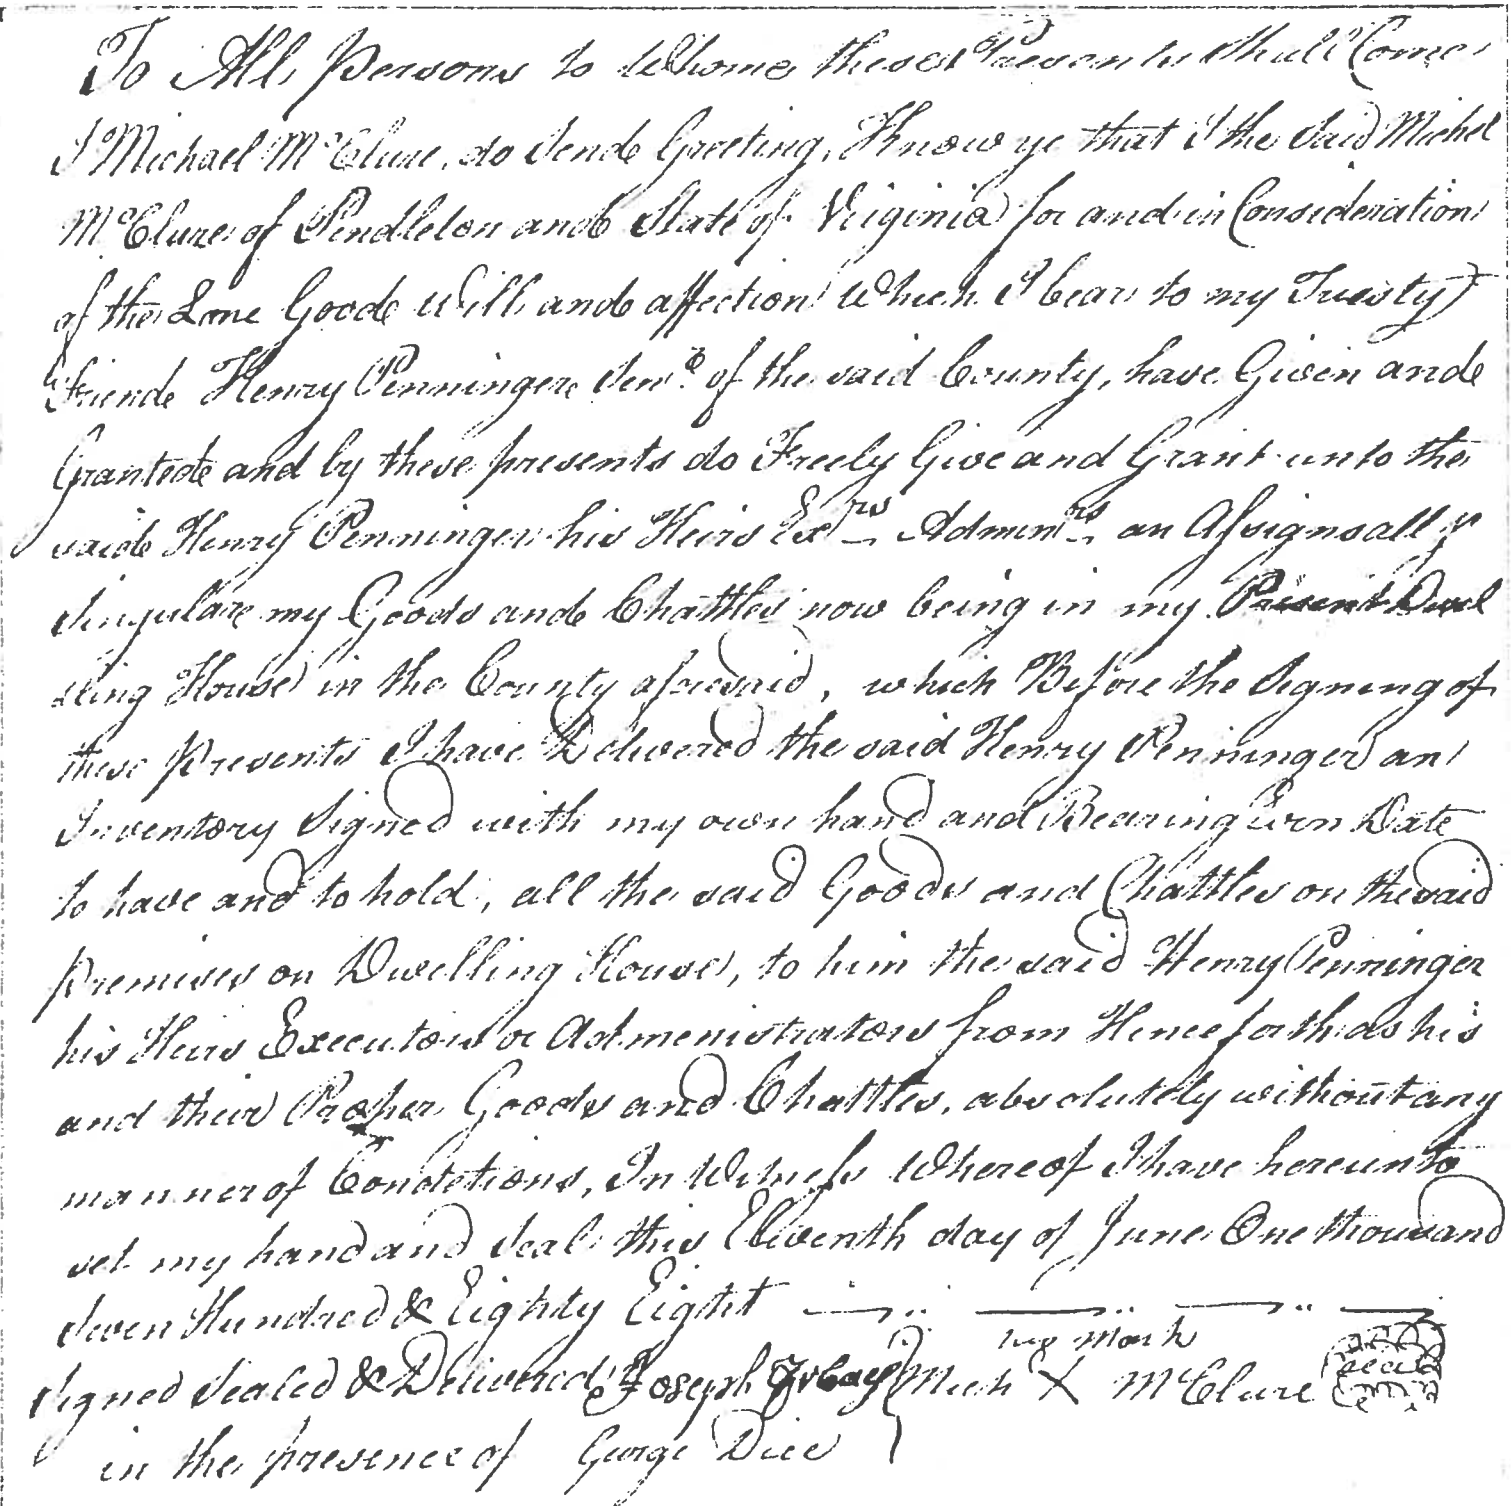 To All Persons to Whome these Presents shall Come
I Michael McClure, do Sende Greeting, Know ye that I the Said Michel
McClure of Pendleton ande State of Virginia for and in Consideration
of the Love Goode Will ande affection Which I bear to my Trusty
Friende Henry Penninger Senr. of the said County, have Given ande
Grantede and by these presents do Freely Give and Grant unto the
saide Henry Penninger his Heirs Exrs Adminrs an Assigns all &
Singulare my Goods ande Chattles now being in my Present Dwel
lling House in the County aforesaid, which Before the Signing of
these Presents I have Delivered the said Henry Penninger an
Inventory Signed with my own hand and Bearing Even Date
to have and to hold, all the said Goods and Chattles on the said
Premises on Dwelling House, to him the said Henry Penninger
his Heirs Executors or Admenistrators from Henceforth as his
and their Proper Goods and Chattles, absolutely without any
manner of Condetions, In Witness Whereof I have hereunto
set my hand and Seal this Eleventh day of June One thousand
Seven Hundred & Eighty Eight
his Mark
Signed Sealed & Delivered Joseph Mich X McClure Seal
in the presence of George Dice